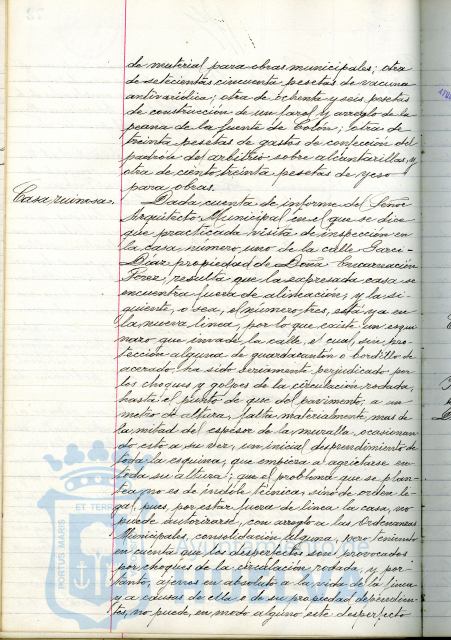 de material para obras municipales; otra
de setecientas cincuenta pesetas de vacuna
antivariólica; otra de ochenta y seis pesetas
de construcción de un farol y arreglo de la
peana de la fuente de Colón; otras de
treinta pesetas de gastos de confección del
padrón del arbitrio sobre alcantarillas, y
otra de ciento treinta pesetas de yeso
para obras.
Casa ruinosa.
Dada cuenta de informe del Señor
Arquitecto Municipal en el que se dice
que practicada visita de inspección en
la casa número uno de la calle Garci-
Díaz propiedad de Doña Encarnación
Pérez, resulta que la expresada casa se
encuentra fuera de alineación; y la si-
guiente, o sea, el número tres, está ya en
la nueva línea, por lo que existe un esqui-
nazo que invade la calle, el cual, sin pro-
tección alguna de guardacantón o bordillo de
acerado ha sido seriamente perjudicado por
los choques y golpes de la circulación rodada,
hasta el punto de que del pavimento, a un
metro de altura, falta materialmente mas de
la mitad del espesor de la muralla, ocasionan-
do esto a su vez, un inicial desprendimiento de
toda la esquina, que empieza a agrietarse en
toda su altura; que el problema que se plan-
tea, no es de índole técnica, sino de orden le-
gal, pues, por estar fuera de línea la casa, no
puede autorizarse, con arreglo a las Ordenanzas
Municipales, consolidación alguna, pero teniendo
en cuenta que los desperfectos son provocados
por choques de la circulación rodada, y por
tanto, ajenos en absoluto a la vida de la finca
y a causas de ella o de su propiedad dependien-
tes, no puede, en modo alguno este desperfecto
PORTUS MARIS
ET TERR